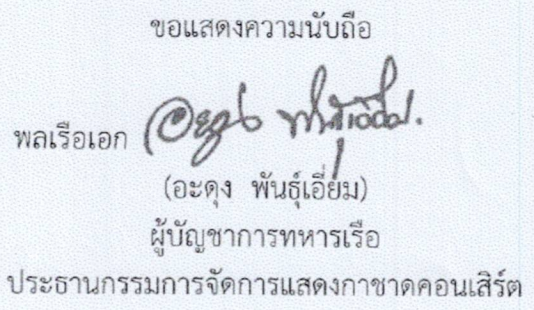 ขอแสดงความนับถือ
พลเรือเอก อะดุง พันธุ์เอี่ยม
(อะดุง พันธุ์เอี่ยม)
ผู้บัญชาการทหารเรือ
ประธานกรรมการจัดการแสดงกาชาดคอนเสิร์ต